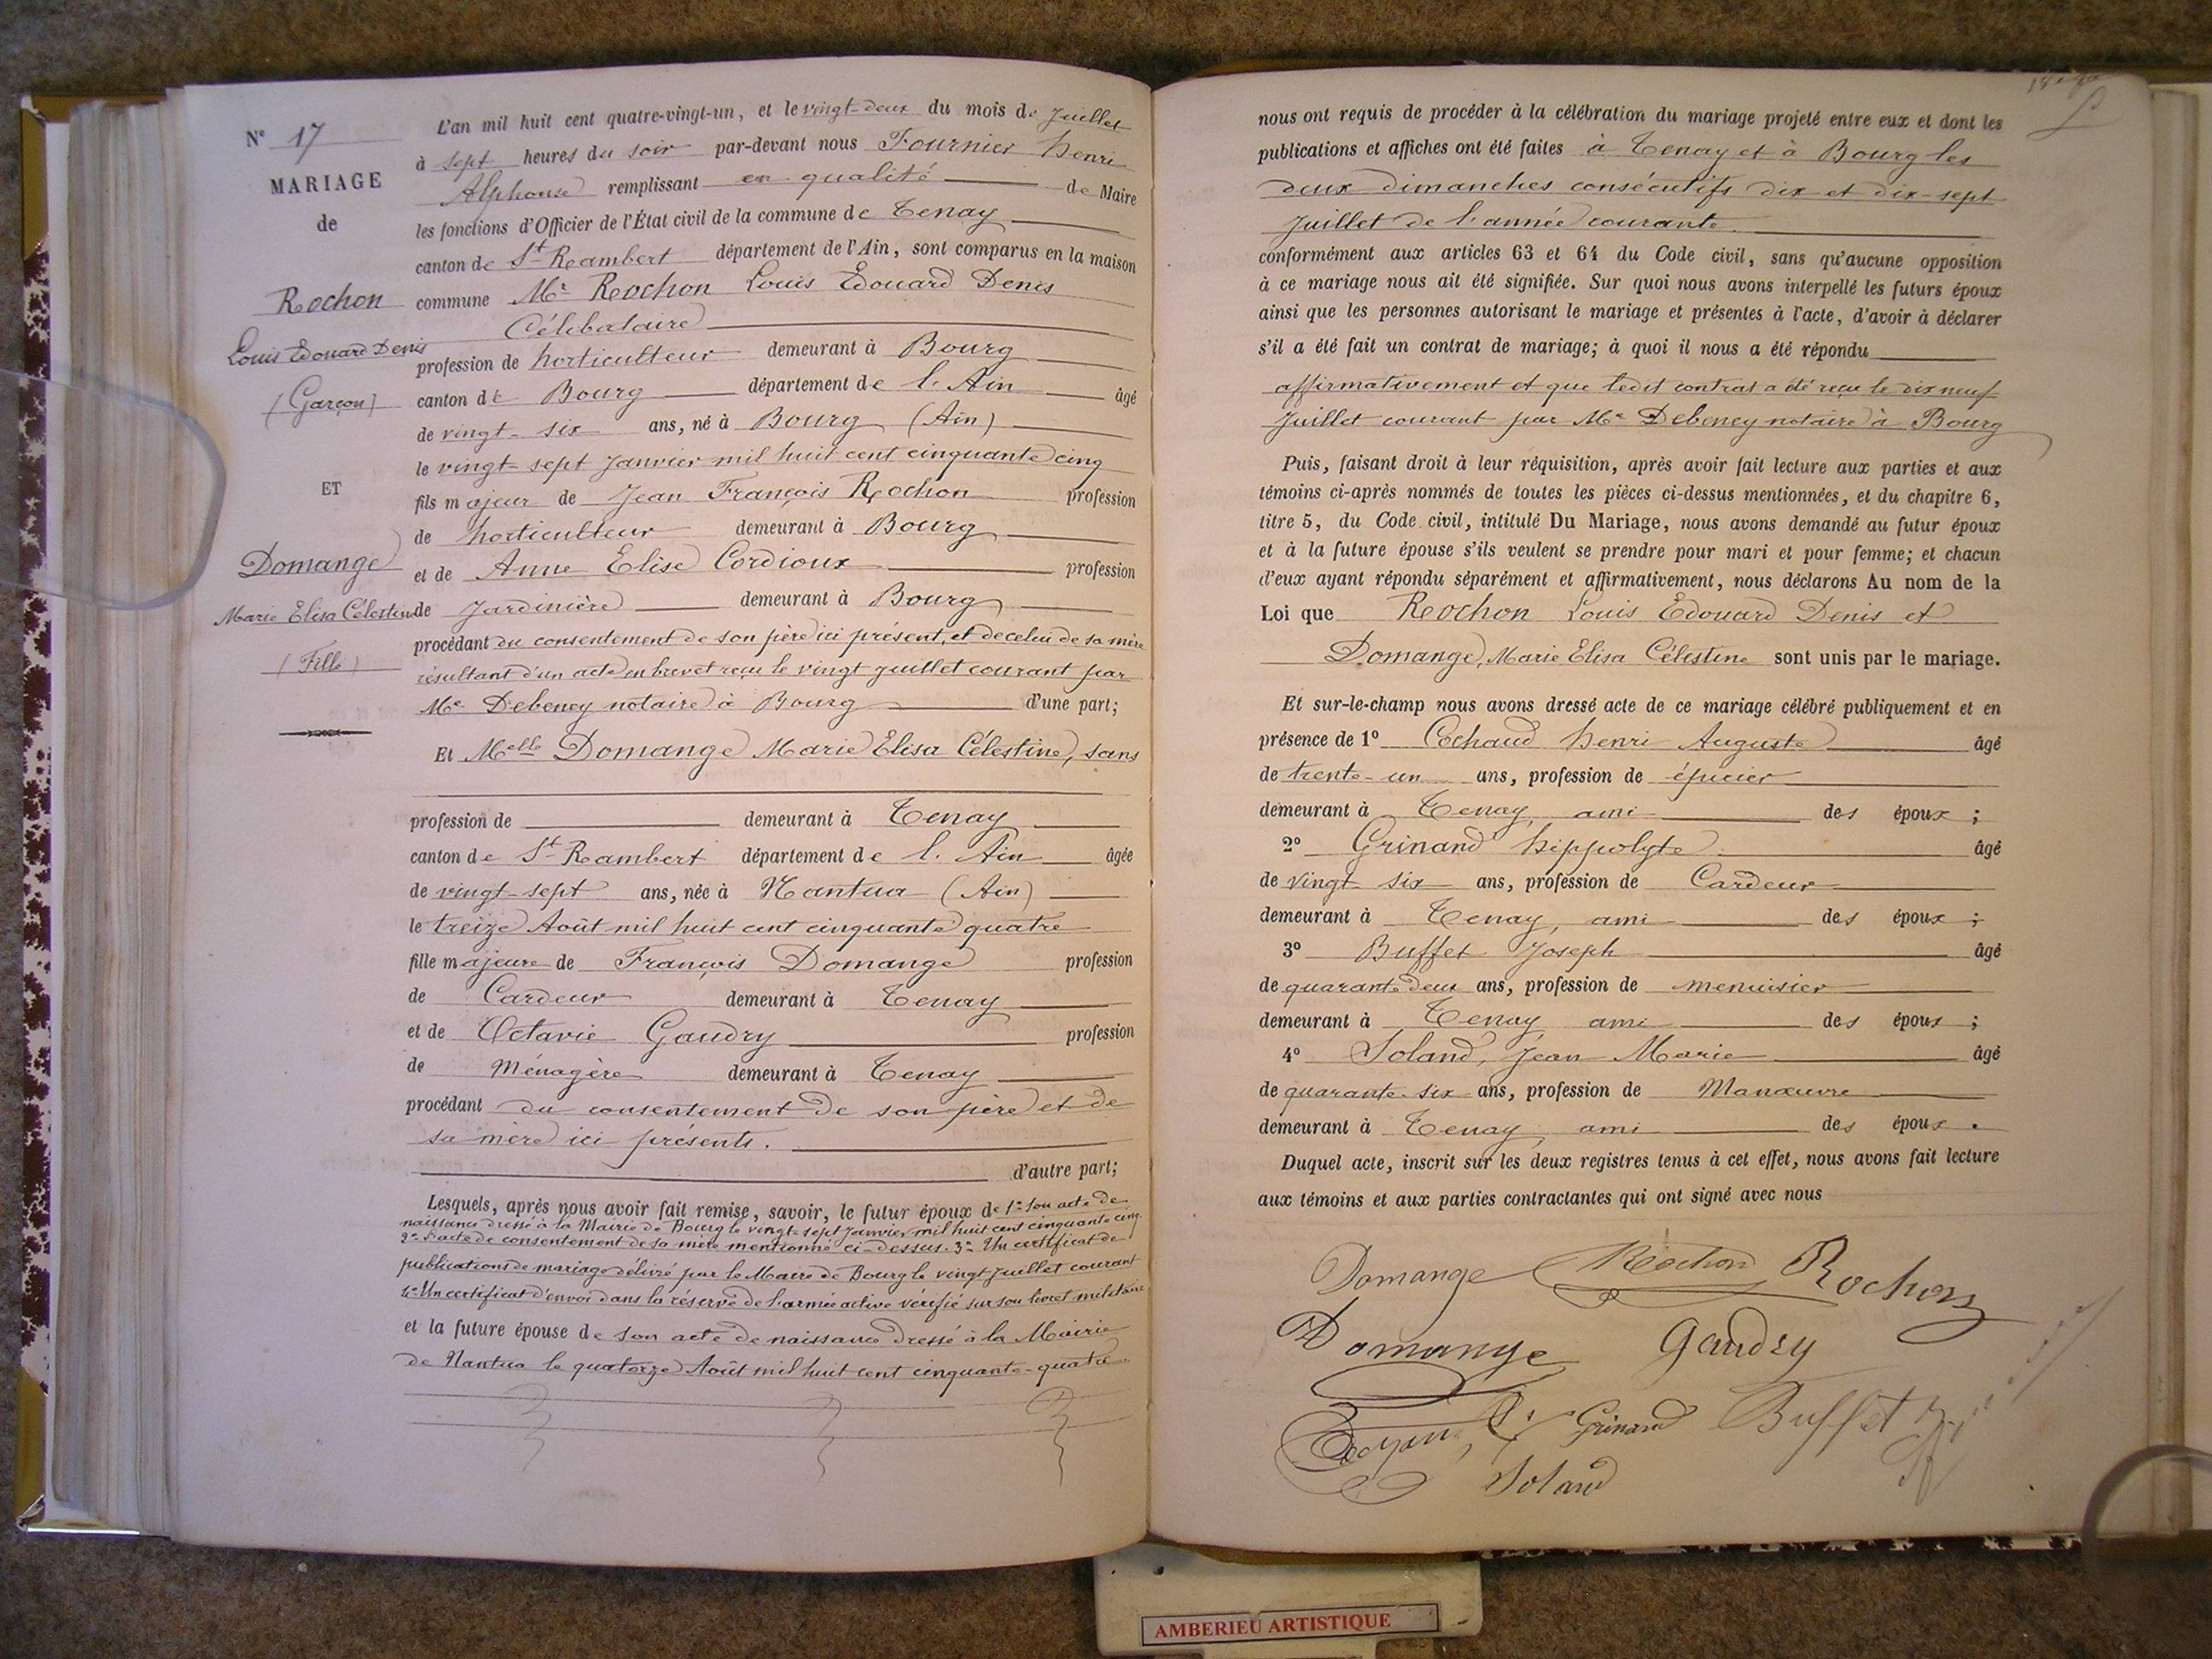 N° 17
MARIAGE
de
Rochon
Louis Edouard Denis
(Garçon)
ET
Domange
Marie Elisa Célestine
(Fille)
L'an mil huit cent quatre-vingt-un, et le vingt-deux du mois de Juillet
à sept heures du soir par-devant nous Fournier Henri
Alphonse remplissant en qualité de Maire
les fonctions d'Officier de l'État civil de la commune de Tenay
canton de St Rambert département de l'Ain, sont comparus en la maison
commune Mr Rochon Louis Edouard Denis
Célibataire
profession de horticulteur demeurant à Bourg
canton de Bourg département de l'Ain âgé
de vingt-six ans, né à Bourg (Ain)
le vingt-sept Janvier mil huit cent cinquante cinq
fils majeur de Jean François Rochon profession
de horticulteur demeurant à Bourg
et de Anne Elise Cordioux profession
de Jardinière demeurant à Bourg
procédant du consentement de son père ici présent, et de celui de sa mère
résultant d'un acte en brevet reçu le vingt juillet courant par
Me Debeney notaire à Bourg d'une part;
Et Melle Domange Marie Elisa Célestine, sans
profession de demeurant à Tenay
canton de St Rambert département de l'Ain âgée
de vingt-sept ans, née à Nantua (Ain)
le treize Août mil huit cent cinquante quatre
fille majeure de François Domange profession
de Cardeur demeurant à Tenay
et de Octavie Gaudry profession
de Ménagère demeurant à Tenay
procédant du consentement de son père et de
sa mère ici présents.
d'autre part;
Lesquels, après nous avoir fait remise, savoir, le futur époux de 1° Son acte de
naissance dressé à la Mairie de Bourg le vingt-sept Janvier mil huit cent cinquante cinq
2° l'acte de consentement de sa mère mentionné ci-dessus. 3° Un certificat de
publications de mariage délivré par le Maire de Bourg le vingt Juillet courant
4° Un certificat d'envoi dans la réserve de l'armée active vérifié sur son livret militaire
et la future épouse de son acte de naissance dressé à la Mairie
de Nantua le quatorze Août mil huit cent cinquante-quatre
nous ont requis de procéder à la célébration du mariage projeté entre eux et dont les
publications et affiches ont été faites à Tenay et à Bourg les
deux dimanches consécutifs dix et dix-sept
Juillet de l'année courante.
conformément aux articles 63 et 64 du Code civil, sans qu'aucune opposition
à ce mariage nous ait été signifiée. Sur quoi nous avons interpellé les futurs époux
ainsi que les personnes autorisant le mariage et présentes à l'acte, d'avoir à déclarer
s'il a été fait un contrat de mariage; à quoi il nous a été répondu
affirmativement et que ledit contrat a été reçu le dix neuf
Juillet courant par Me Debeney notaire à Bourg
Puis, faisant droit à leur réquisition, après avoir fait lecture aux parties et aux
témoins ci-après nommés de toutes les pièces ci-dessus mentionnées, et du chapitre 6,
titre 5, du Code civil, intitulé Du Mariage, nous avons demandé au futur époux
et à la future épouse s'ils veulent se prendre pour mari et pour femme; et chacun
d'eux ayant répondu séparément et affirmativement, nous déclarons Au nom de la
Loi que Rochon Louis Edouard Denis et
Domange, Marie Elisa Célestine sont unis par le mariage.
Et sur-le-champ nous avons dressé acte de ce mariage célébré publiquement et en
présence de 1° Cochaud Henri Auguste âgé
de trente-un ans, profession de épicier
demeurant à Tenay, ami des époux ;
2° Grinand Hippolyte âgé
de vingt six ans, profession de Cardeur
demeurant à Tenay, ami des époux ;
3° Buffet Joseph âgé
de quarante deux ans, profession de menuisier
demeurant à Tenay ami des époux ;
4° Soland, Jean Marie âgé
de quarante-six ans, profession de Manœuvre
demeurant à Tenay, ami des époux .
Duquel acte, inscrit sur les deux registres tenus à cet effet, nous avons fait lecture
aux témoins et aux parties contractantes qui ont signé avec nous
Domange Rochon Rochon
Domange Gaudry
Grinand Buffet
Soland
AMBERIEU ARTISTIQUE